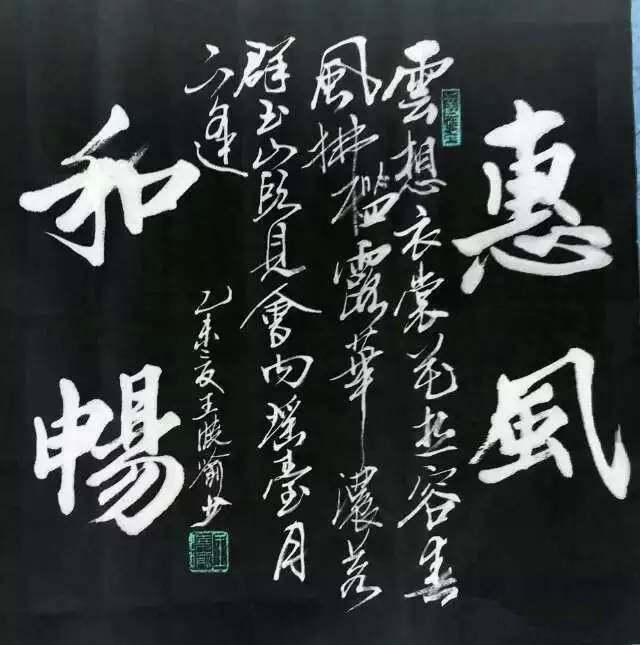 惠風
雲想衣裳花想容春
風拂檻露華濃若
群玉山頭見會向瑤臺月
下逢
乙未夏王晓书
和暢